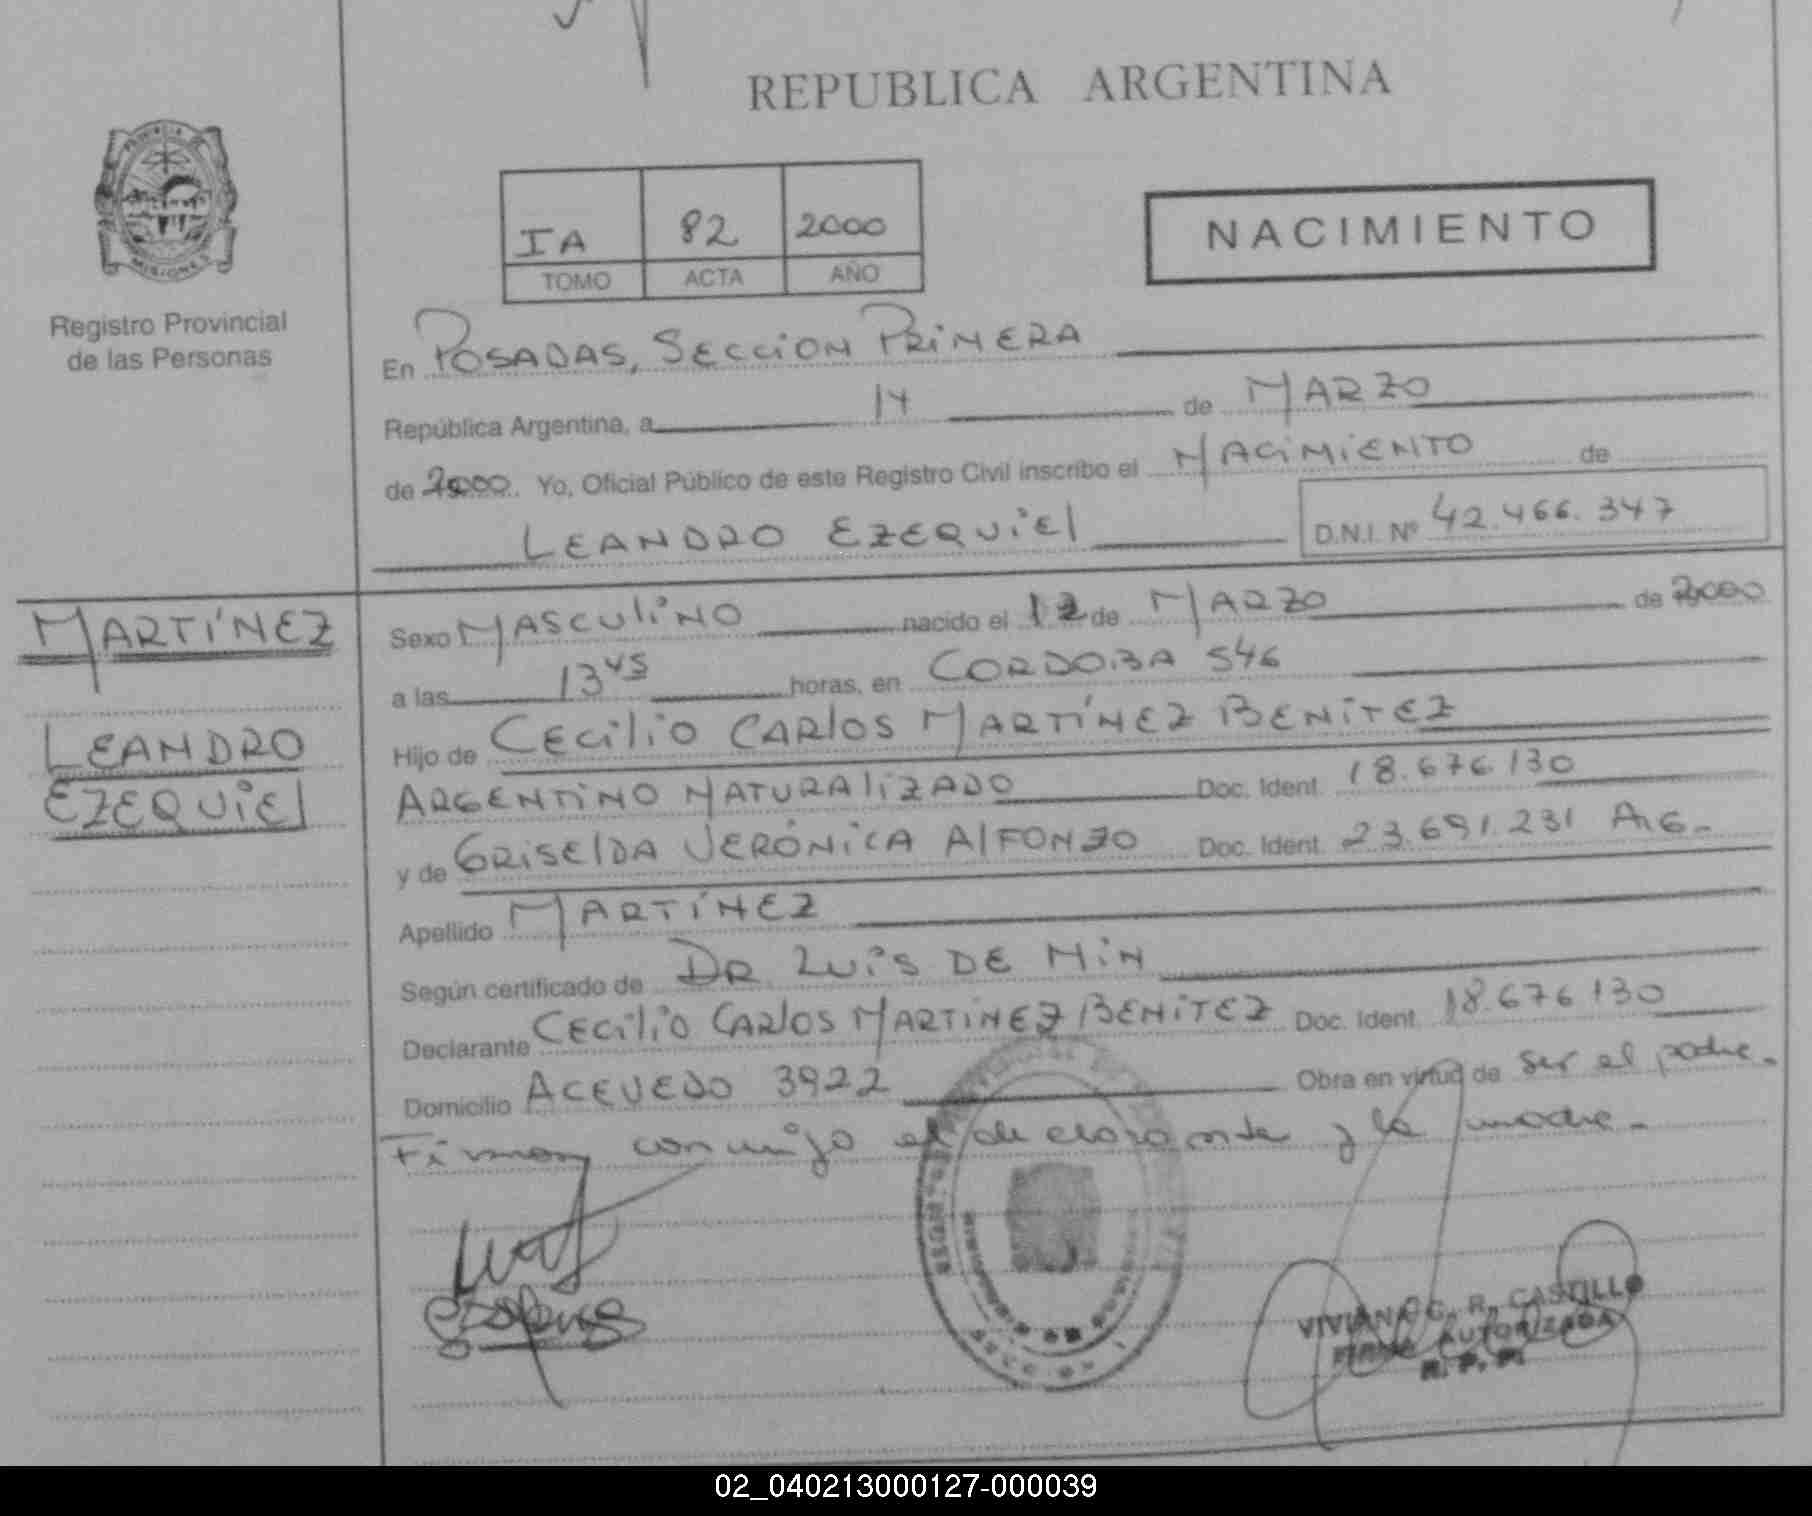 REPUBLICA ARGENTINA
IA 82 2000
TOMO ACTA AÑO
NACIMIENTO
Registro Provincial
de las Personas
En POSADAS, SECCION PRIMERA
República Argentina, a 14 de MARZO
de 2000. Yo, Oficial Público de este Registro Civil inscribo el NACIMIENTO de
LEANDRO EZEQUIEL D.N.I. Nº 42.466.347
MARTÍNEZ
LEANDRO
EZEQUIEL
Sexo MASCULINO nacido el 12 de MARZO de 2000
a las 13 45 horas, en CORDOBA 546
Hijo de CECILIO CARLOS MARTÍNEZ BENITEZ
ARGENTINO NATURALIZADO Doc. Ident. 18.676.130
y de GRISELDA VERÓNICA ALFONZO Doc. Ident. 23.691.231 ARG.
Apellido MARTÍNEZ
Según certificado de DR LUIS DE MIN
Declarante CECILIO CARLOS MARTINEZ BENITEZ Doc. Ident. 18.676.130
Domicilio ACEVEDO 3922 Obra en virtud de ser el padre.
Firman conmigo el declarante y la madre.
VIVIANA C. R. CASTILLO
FIRMA AUTORIZADA
R. P. P.
MISIONES
02_040213000127-000039